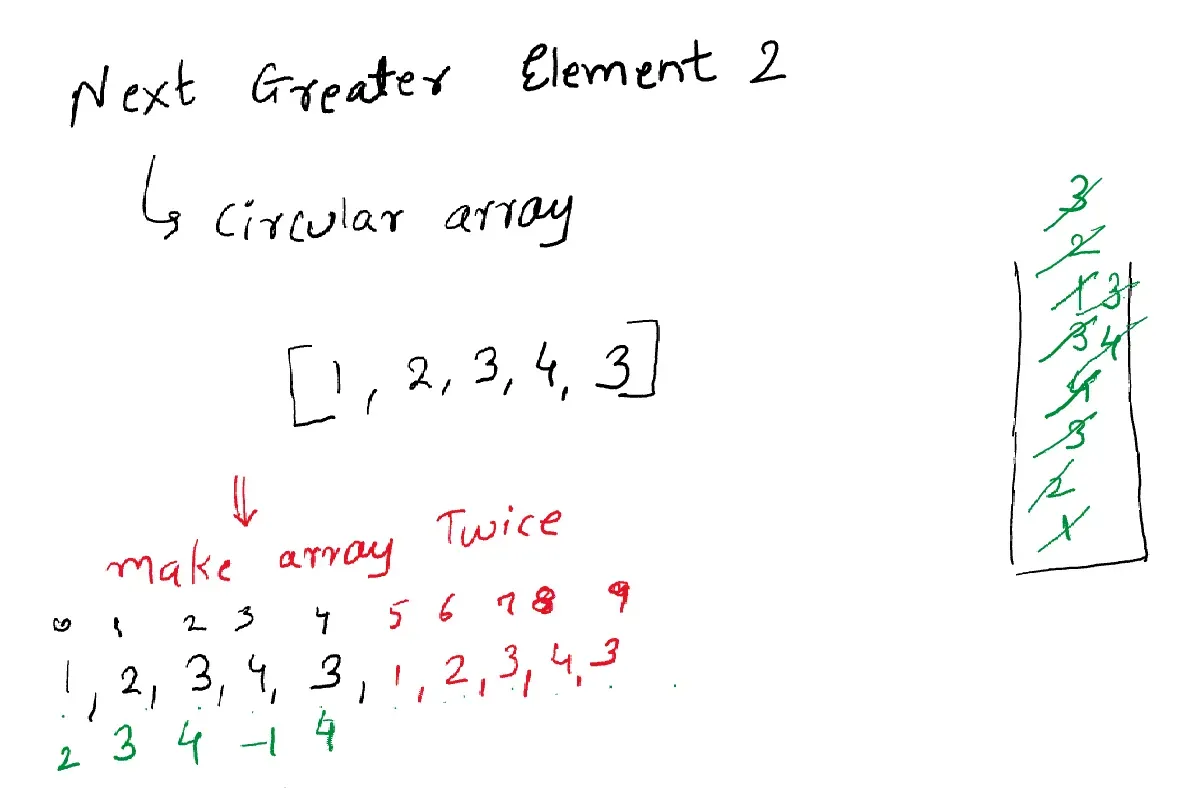 Next Greater Element 2
↳ circular array
[1, 2, 3, 4, 3]
⇓
make array Twice
0 1 2 3 4 5 6 7 8 9
1, 2, 3, 4, 3, 1, 2, 3, 4, 3
2 3 4 -1 4
3
2
1 3
3 4
4
3
2
1